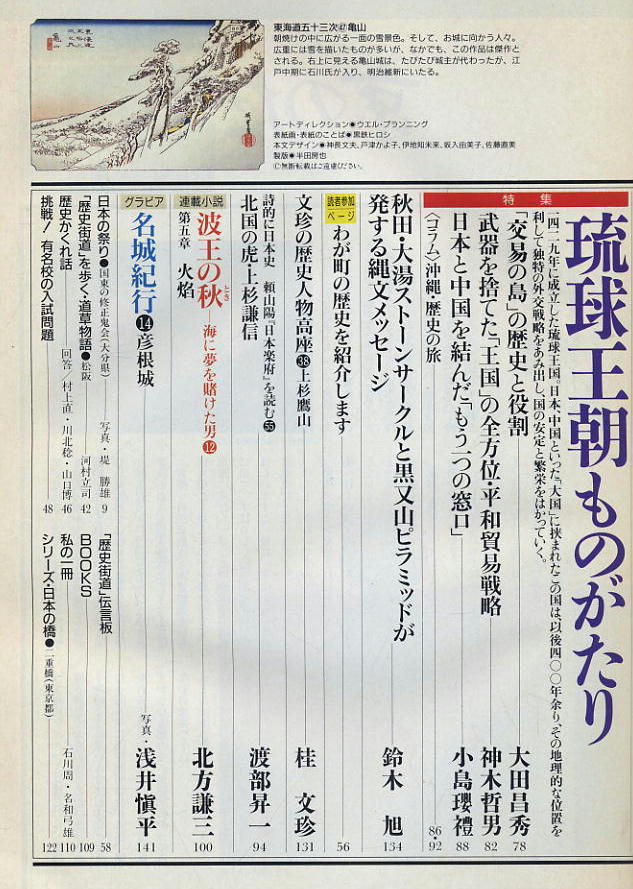 東海道五十三次㊼亀山
朝焼けの中に広がる一面の雪景色。そして、お城に向かう人々。
広重には雪を描いたものが多いが、なかでも、この作品は傑作と
される。右上に見える亀山城は、たびたび城主が代わったが、江
戸中期に石川氏が入り、明治維新にいたる。
アートディレクション●ウエル・プランニング
表紙画・表紙のことば●黒鉄ヒロシ
本文デザイン●神長文夫、戸津かよ子、伊地知未来、坂入由美子、佐藤直美
製版●半田房也
©無断転載はご遠慮ください。
特集
琉球王朝ものがたり
一四二九年に成立した琉球王国。日本、中国といった「大国」に挟まれたこの国は、以後四〇〇年余り、その地理的な位置を
利して独特の外交戦略をあみ出し、国の安定と繁栄をはかっていく。
「交易の島」の歴史と役割 大田昌秀 78
武器を捨てた「王国」の全方位・平和貿易戦略 神木哲男 82
日本と中国を結んだ「もう一つの窓口」 小島瓔禮 88
〈コラム〉沖縄・歴史の旅 86・92
秋田・大湯ストーンサークルと黒又山ピラミッドが
発する縄文メッセージ 鈴木旭 134
読者参加ページ
わが町の歴史を紹介します 56
文珍の歴史人物高座㊳上杉鷹山 桂文珍 131
詩的に日本史 頼山陽『日本楽府』を読む㊺
北国の虎・上杉謙信 渡部昇一 94
連載小説
波王の秋 海に夢を賭けた男⑫
とき
第五章 火焰 北方謙三 100
グラビア
名城紀行⑭彦根城 写真・浅井愼平 141
日本の祭り●国東の修正鬼会(大分県) 写真・堤勝雄 9
「歴史街道」を歩く・道草物語●松阪 河村立司 42
歴史かくれ話 回答/村上直・川北稔・山口博 46
挑戦!有名校の入試問題 48
「歴史街道」伝言板 58
BOOKS 109
私の一冊 石川周・名和弓雄 110
シリーズ・日本の橋●二重橋(東京都) 122